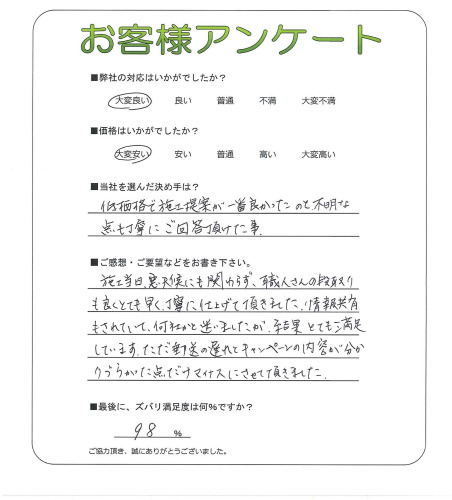 お客様アンケート
■弊社の対応はいかがでしたか？
大変良い 良い 普通 不満 大変不満
■価格はいかがでしたか？
大変安い 安い 普通 高い 大変高い
■当社を選んだ決め手は？
低価格で施工提案が一番良かったのと不明な
点も丁寧にご回答頂けた事。
■ご感想・ご要望などをお書き下さい。
施工当日、悪天候にも関わらず、職人さんの段取り
も良くとても早く、丁寧に仕上げて頂きました。情報共有
もされていて、何社かと迷いましたが、結果とても満足
しています。ただ郵送の遅れとキャンペーンの内容が分か
りづらかった点だけマイナスにさせて頂きました。
■最後に、ズバリ満足度は何%ですか？
98 %
ご協力頂き、誠にありがとうございました。